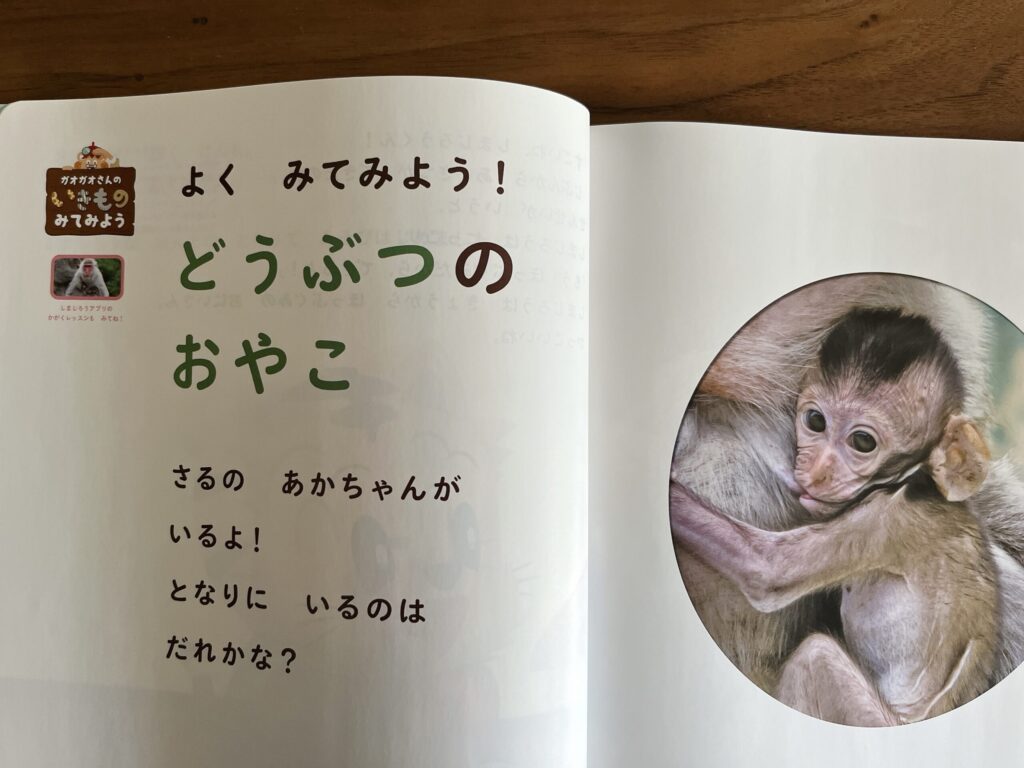 ガオガオさんの
いきもの
みてみよう
しまじろうアプリの
かがくレッスンも みてね！
よく みてみよう！
どうぶつの
おやこ
さるの あかちゃんが
いるよ！
となりに いるのは
だれかな？